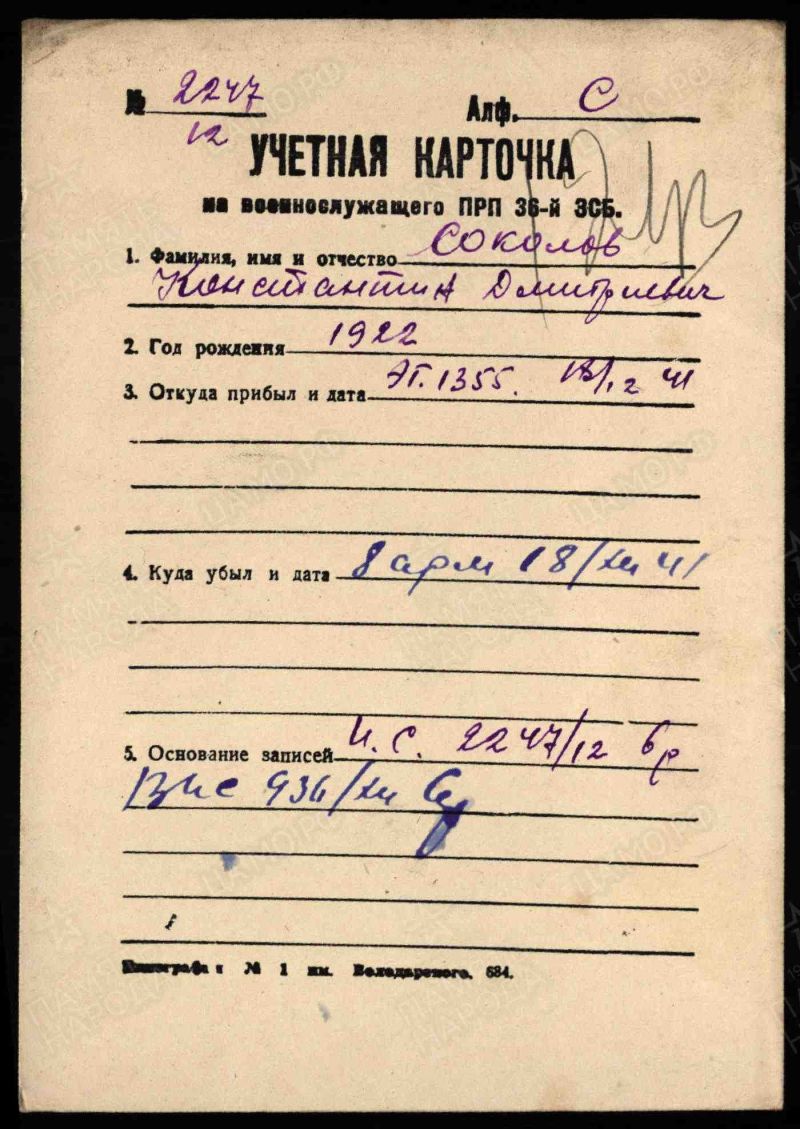 № 2247 Алф. С
12
УЧЕТНАЯ КАРТОЧКА
на военнослужащего ПРП 36-й ЗСБ.
1. Фамилия, имя и отчество Соколов
Константин Дмитриевич
2. Год рождения 1922
3. Откуда прибыл и дата эт. 1355. 18/12 41
4. Куда убыл и дата 8 арм 18/XII 41
5. Основание записей И.С. 2247/12
936/XII
Типография № 1 им. Володарского. 684.